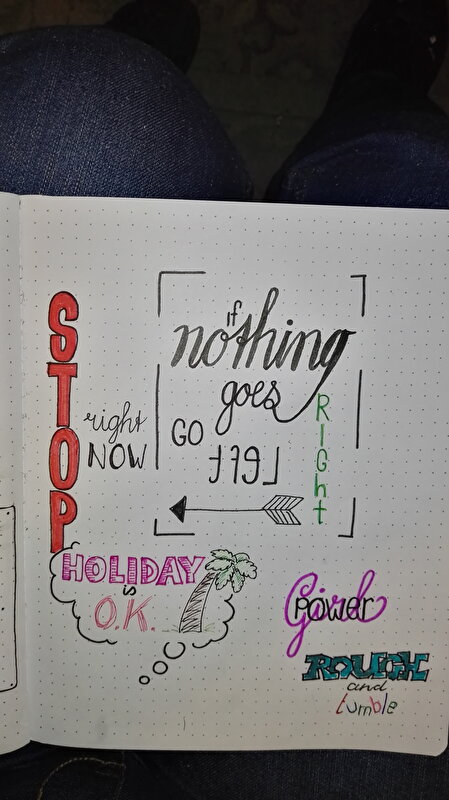 STOP
right
NOW
if
nothing
goes
RIGht
GO
LEFT
HOLIDAY
is
O.K.
Girl
POWER
ROUGH
and
tumble